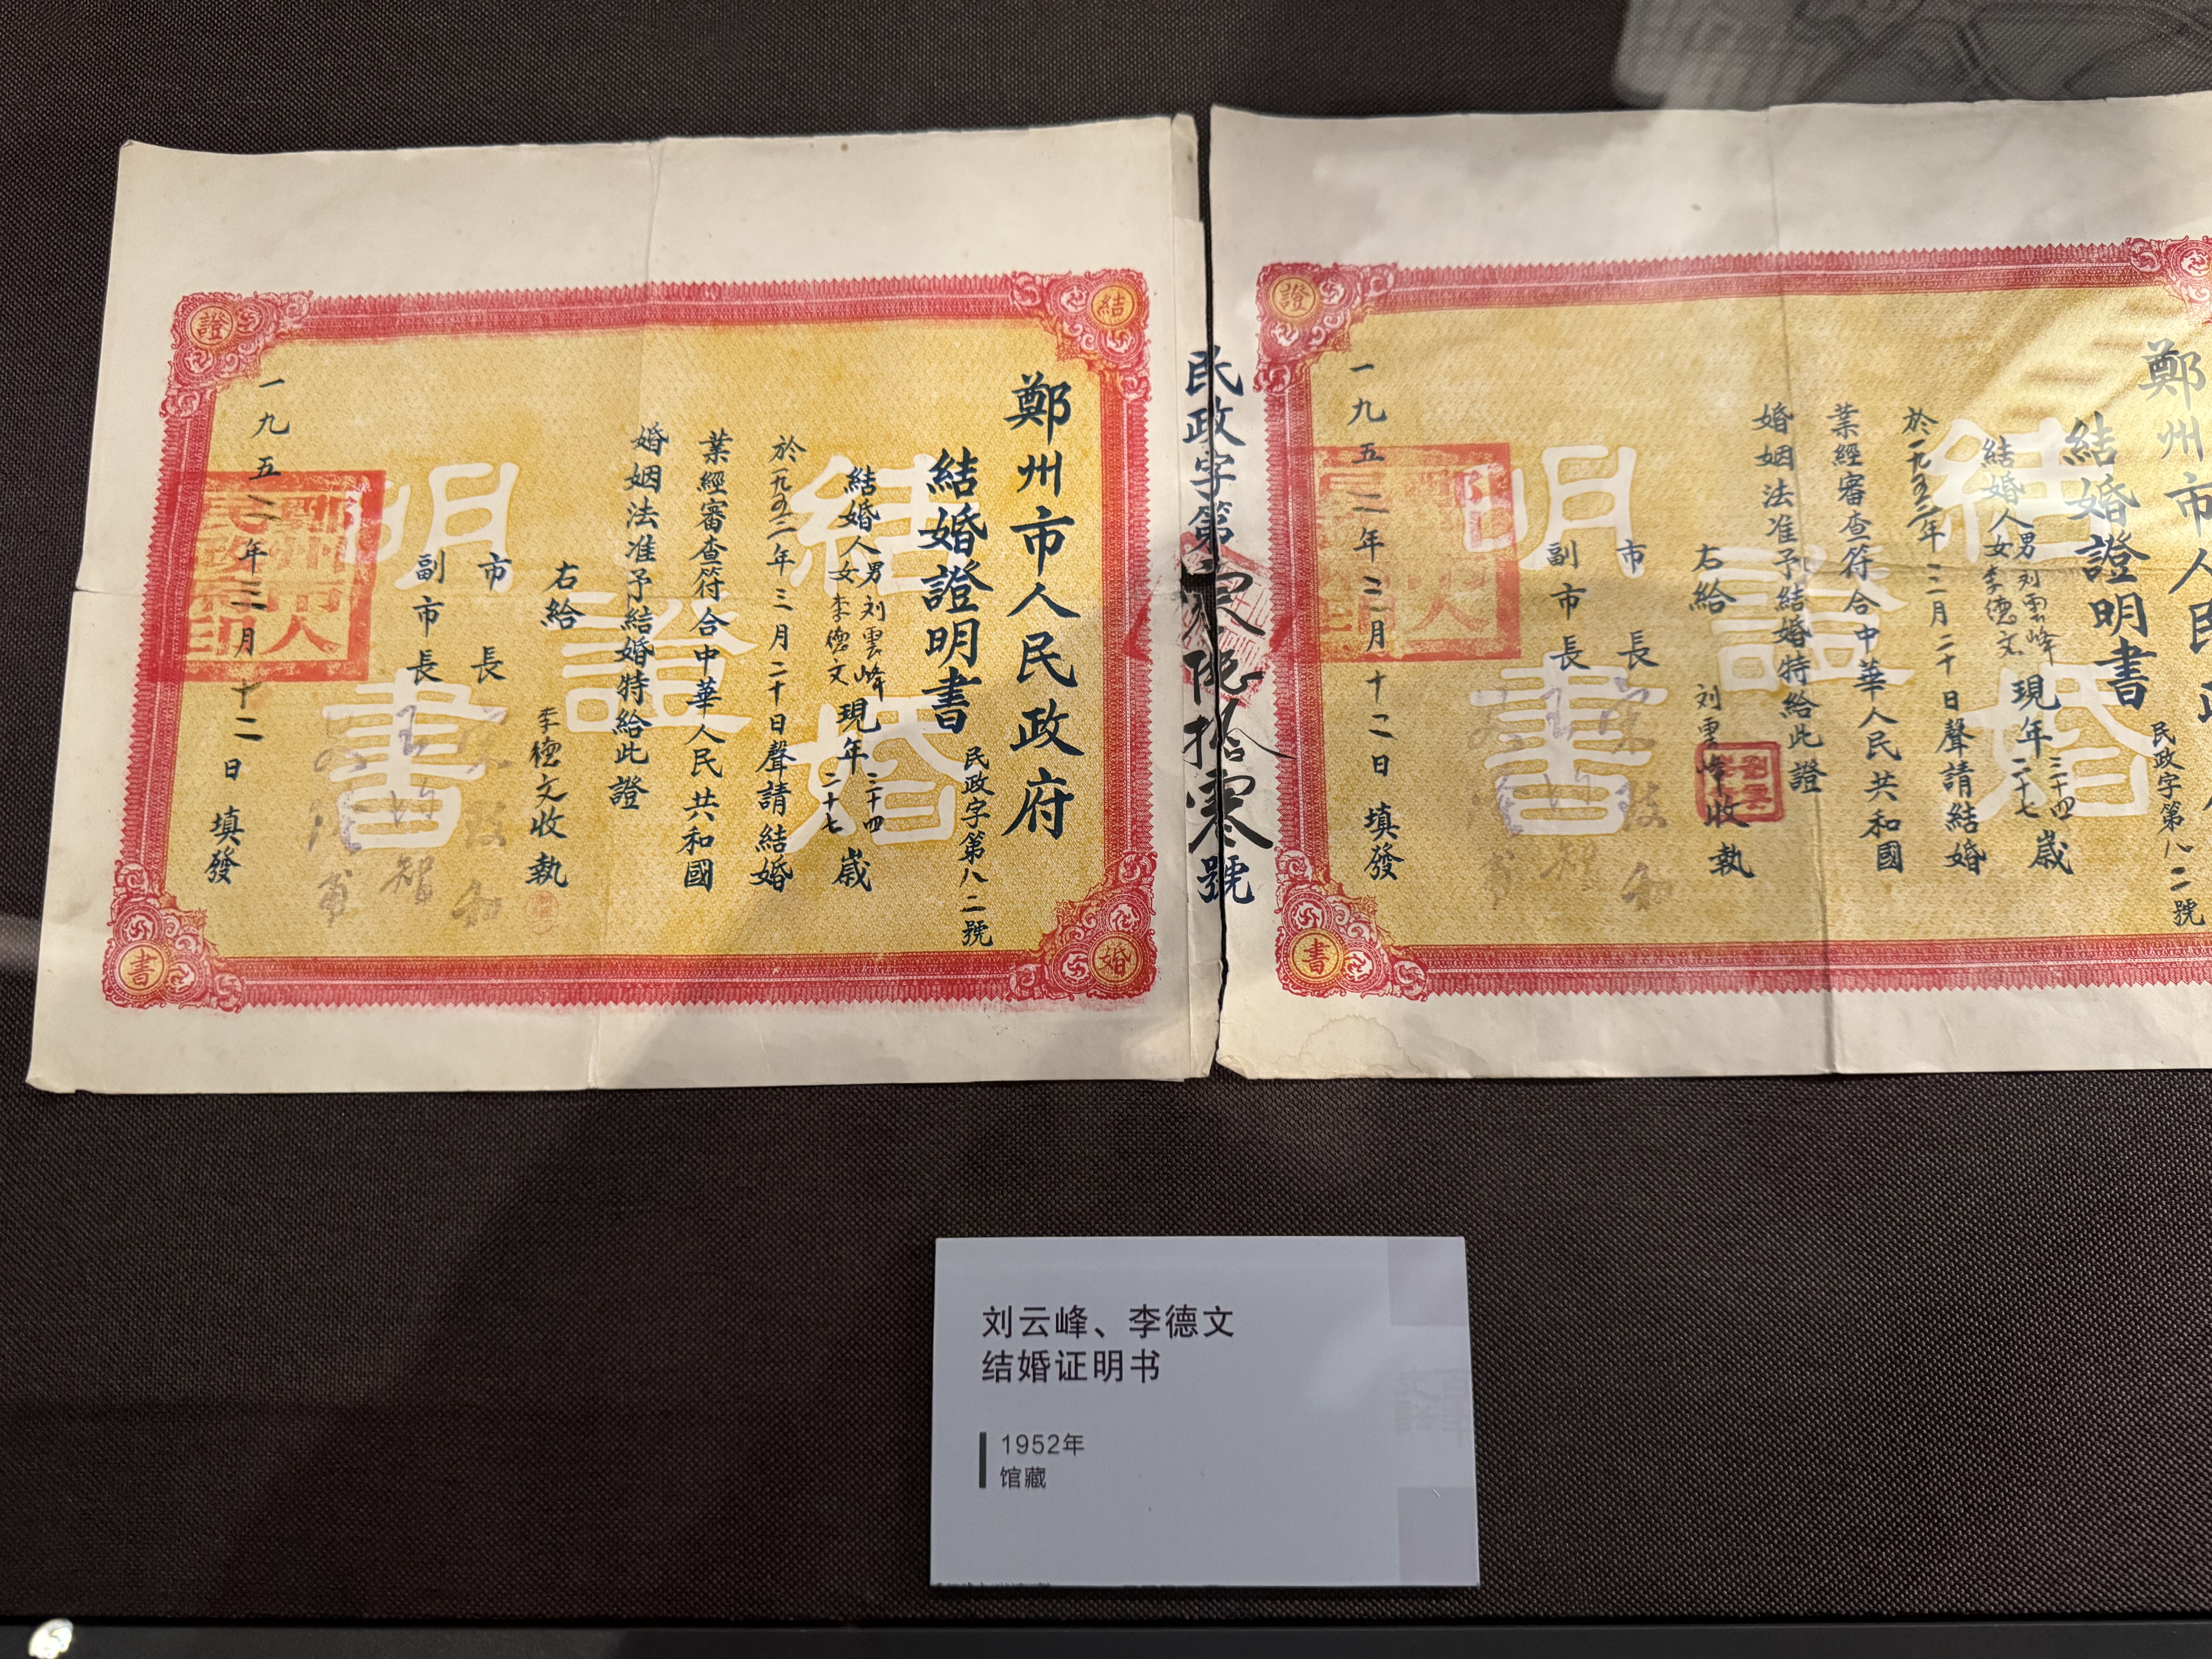 鄭州市人民政府
結婚證明書
民政字第八二號
結婚人男刘雲峰女李德文現年三十四二十七歲
於一九五二年三月二十日聲請結婚
業經審查符合中華人民共和國
婚姻法准予結婚特給此證
右給
李德文收執
市長
副市長
一九五二年三月十二日填發
結婚
證
明書
結
婚
證
書
民政字第
號
鄭州市人民政
結婚證明書
民政字第八二號
結婚人男刘雲峰女李德文現年三十四二十七歲
於一九五二年三月二十日聲請結婚
業經審查符合中華人民共和國
婚姻法准予結婚特給此證
右給
刘雲峰收執
市長
副市長
一九五二年三月十二日填發
結婚
證
明書
證
書
刘云峰、李德文
结婚证明书
1952年
馆藏